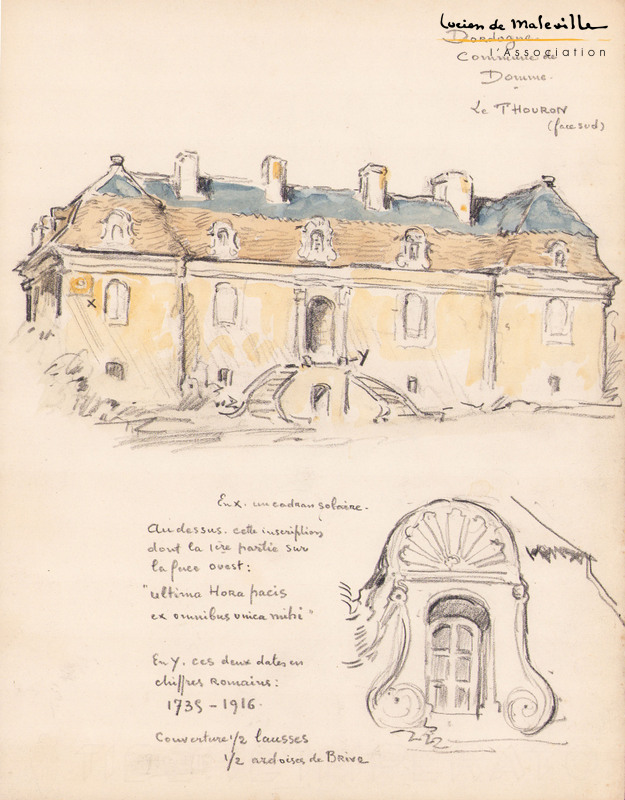 Lucien de Maleville
l'Association
Dordogne.
Commune de
Domme.
Le THOURON
(face sud)
x
Y
En X. un cadran solaire.
Au dessus. cette inscription
dont la 1ère partie sur
la face ouest:
"ultima Hora pacis
ex omnibus unica mihi"
En Y. ces deux dates en
chiffres Romains:
1735 - 1916.
Couverture 1/2 lausses
1/2 ardoises de Brive